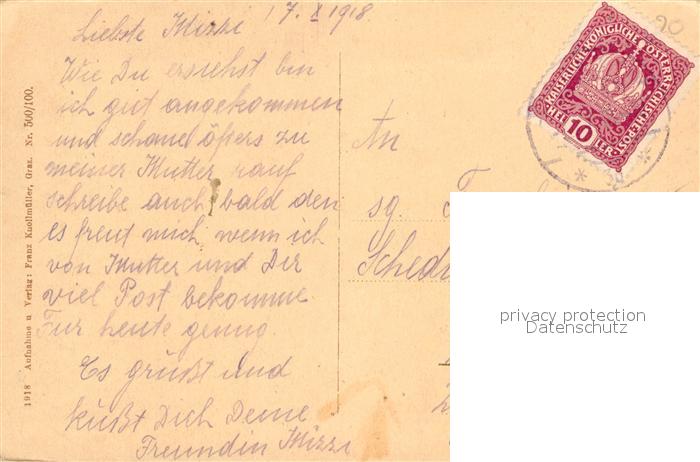 Liebste Mizzi 17. X 1918.
Wie Du ersiehst bin
ich gut angekommen
und schaue öfters zu
meiner Mutter rauf
schreibe auch bald den
es freut mich wenn ich
von Mutter und Dir
viel Post bekomme
Für heute genug.
Es grüßt und
küßt Dich Deine
Freundin Mizzi
1918 Aufnahme u Verlag: Franz Knollmüller, Graz. Nr. 500/100.
90
KAISERLICHE KÖNIGLICHE ÖSTERREICHISCHE POST
HEL 10 LER
An
sg.
privacy protection
Datenschutz